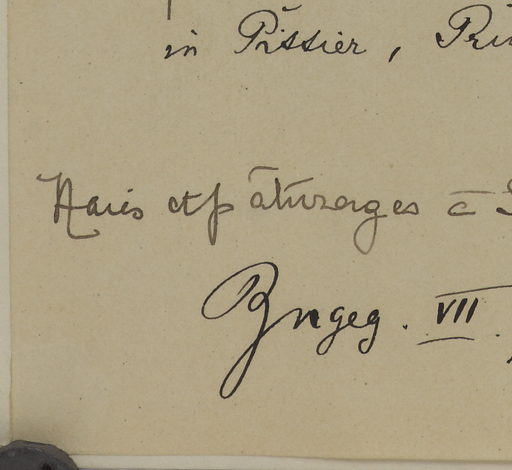 in Pissier, Prin
Haies et pâturages à S
Bngeg. VII.